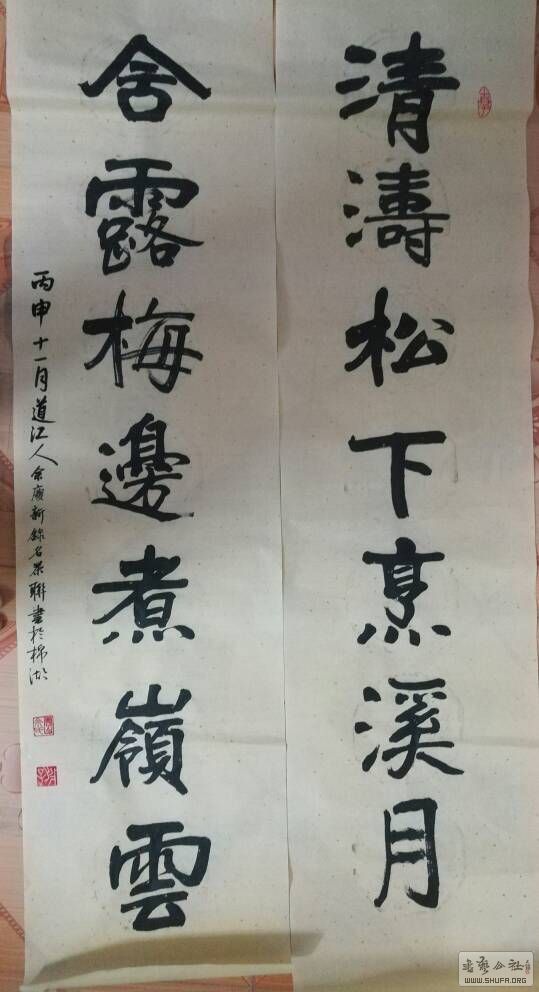 清濤松下烹溪月
含露梅邊煮嶺雲
丙申十一月道江人余廣新錄名茶聯書於棉湖
WWW.SHUFA.ORG